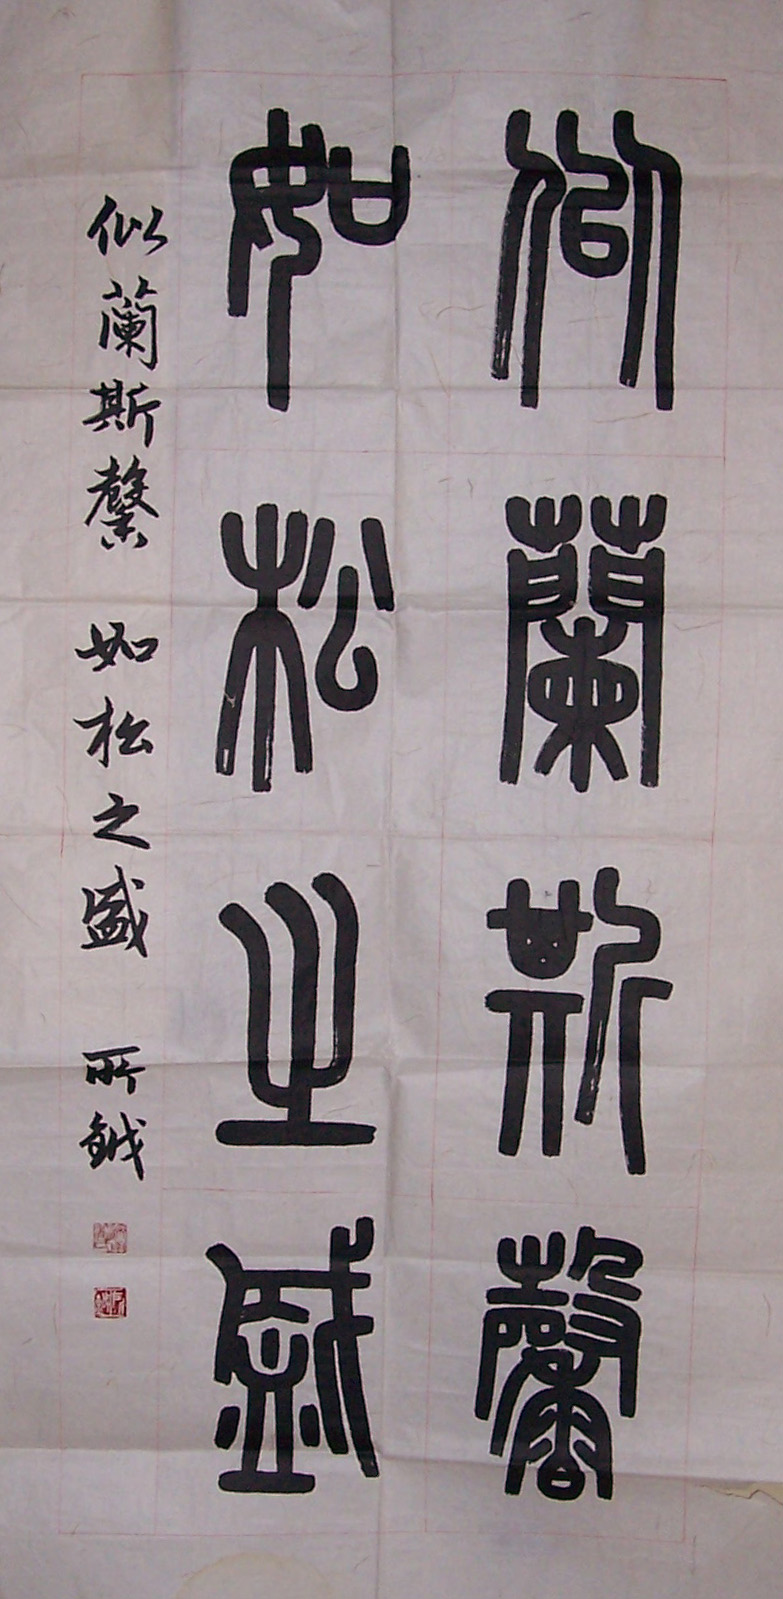 佀蘭斯馨
如松之盛
似蘭斯馨 如松之盛 所鉞